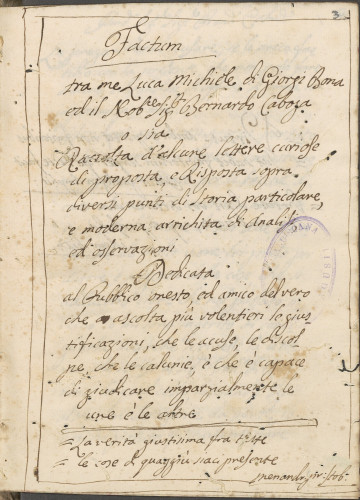 3
Factum
tra me Luca Michiele di Giorgi Bona
ed il Nob:e Sig:r Bernardo Caboga
o sia
Raccolta d'alcune lettere curiose
di proposta e Risposta sopra
diversi punti di Storia particolare,
e moderna arrichita di Analisi
ed osservazioni
Dedicata
al Publico onesto, ed amico del vero
che ascolta più volentieri le gius-
tificazioni, che le accuse, le discol-
pe che le calunie, e che è capace
di giudicare imparzialmente le
une è le altre
= La verità giustissima fra tutte
= le cose di quaggiù siaci presente
menandr: